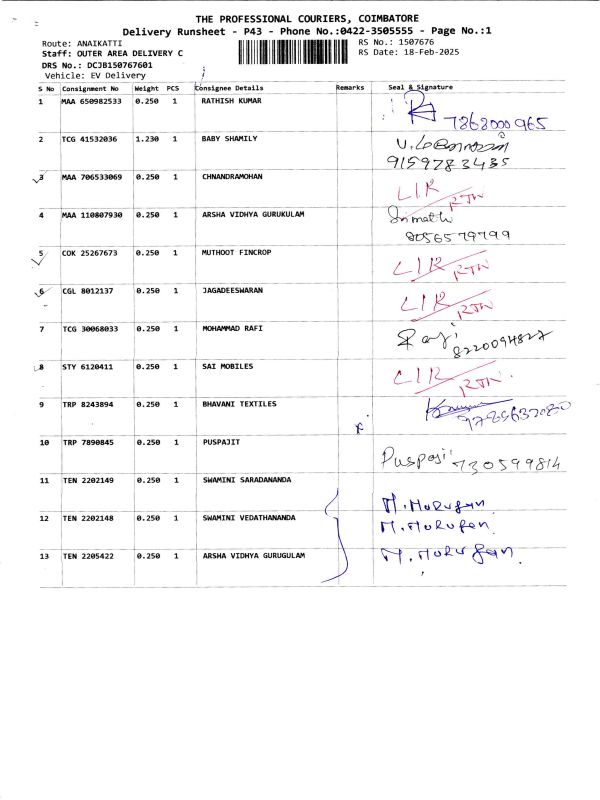 THE PROFESSIONAL COURIERS, COIMBATORE
Delivery Runsheet - P43 - Phone No.:0422-3505555 - Page No.:1
Route: ANAIKATTI RS No.: 1507676
Staff: OUTER AREA DELIVERY C RS Date: 18-Feb-2025
DRS No.: DCJB150767601
Vehicle: EV Delivery
S No Consignment No Weight PCS Consignee Details Remarks Seal & Signature
1 MAA 650982533 0.250 1 RATHISH KUMAR
7868000965
2 TCG 41532036 1.230 1 BABY SHAMILY
9159783435
3 MAA 706533069 0.250 1 CHNANDRAMOHAN LIR
RTN
4 MAA 110807930 0.250 1 ARSHA VIDHYA GURUKULAM Srimathi
8056579799
5 COK 25267673 0.250 1 MUTHOOT FINCROP LIR RTN
6 CGL 8012137 0.250 1 JAGADEESWARAN LIR
RTN
7 TCG 30068033 0.250 1 MOHAMMAD RAFI
8220094827
8 STY 6120411 0.250 1 SAI MOBILES LIR RTN
9 TRP 8243894 0.250 1 BHAVANI TEXTILES
10 TRP 7890845 0.250 1 PUSPAJIT
Puspaji 730599814
11 TEN 2202149 0.250 1 SWAMINI SARADANANDA M. Murugan
12 TEN 2202148 0.250 1 SWAMINI VEDATHANANDA M. Murugan
13 TEN 2205422 0.250 1 ARSHA VIDHYA GURUGULAM M. Murugan